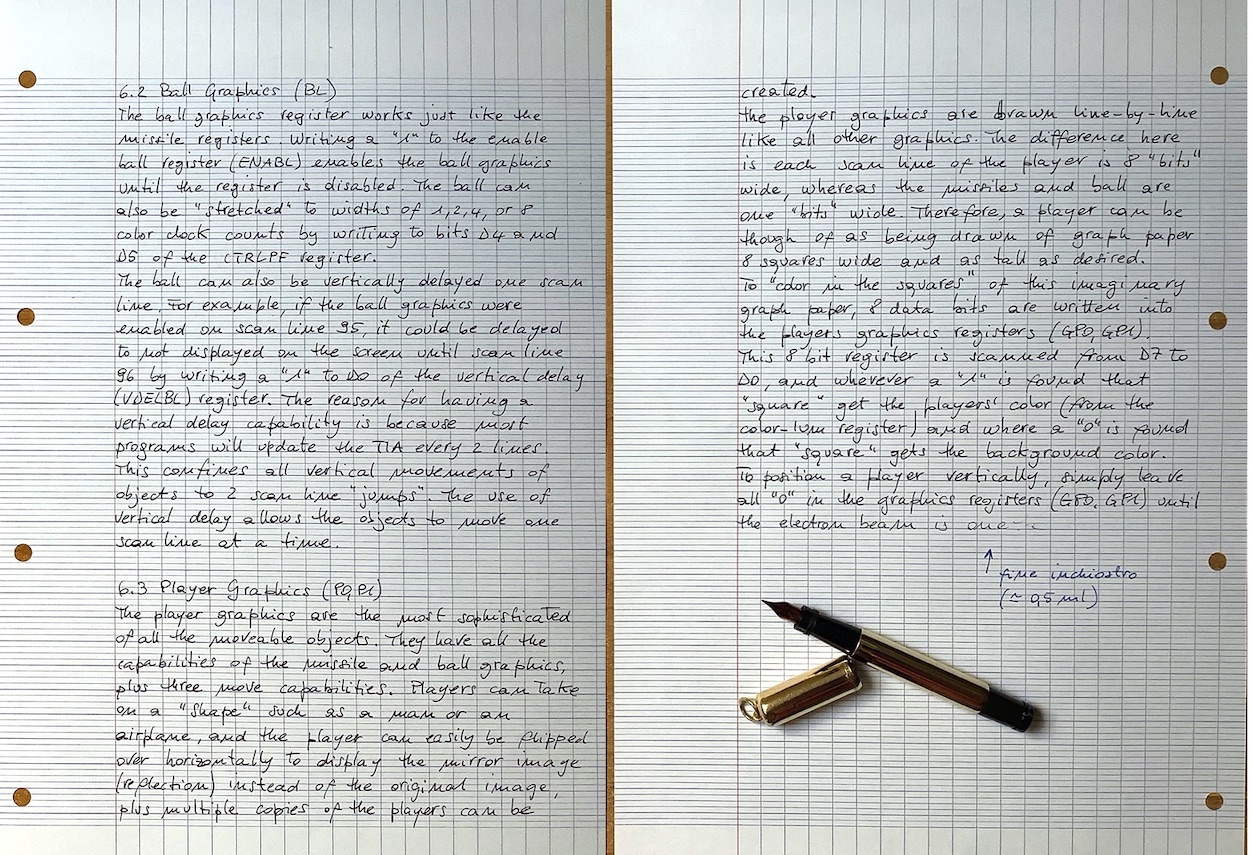 6.2 Ball Graphics (BL)
The ball graphics register works just like the
missile registers. Writing a "1" to the enable
ball register (ENABL) enables the ball graphics
until the register is disabled. The ball can
also be "stretched" to widths of 1,2,4, or 8
color clock counts by writing to bits D4 and
D5 of the CTRLPF register.
The ball can also be vertically delayed one scan
line. For example, if the ball graphics were
enabled on scan line 95, it could be delayed
to not displayed on the screen until scan line
96 by writing a "1" to D0 of the vertical delay
(VDELBL) register. The reason for having a
vertical delay capability is because most
programs will update the TIA every 2 lines.
This confines all vertical movements of
objects to 2 scan line "jumps". The use of
vertical delay allows the objects to move one
scan line at a time.
6.3 Player Graphics (P0, P1)
The player graphics are the most sophisticated
of all the moveable objects. They have all the
capabilities of the missile and ball graphics,
plus three move capabilities. Players can take
on a "shape" such as a man or an
airplane, and the player can easily be flipped
over horizontally to display the mirror image
(reflection) instead of the original image,
plus multiple copies of the players can be
created.
the player graphics are drawn line-by-line
like all other graphics. The difference here
is each scan line of the player is 8 "bits"
wide, whereas the missiles and ball are
one "bits" wide. Therefore, a player can be
though of as being drawn of graph paper
8 squares wide and as tall as desired.
To "color in the squares" of this imaginary
graph paper, 8 data bits are written into
the players graphics registers (GP0, GP1).
This 8 bit register is scanned from D7 to
D0, and wherever a "1" is found that
"square" get the players' color (from the
color-lum register) and where a "0" is found
that "square" gets the background color.
To position a player vertically, simply leave
all "0" in the graphics registers (GP0, GP1) until
the electron beam is one---
↑ fine inchiostro
(≃ 0,5 ml)